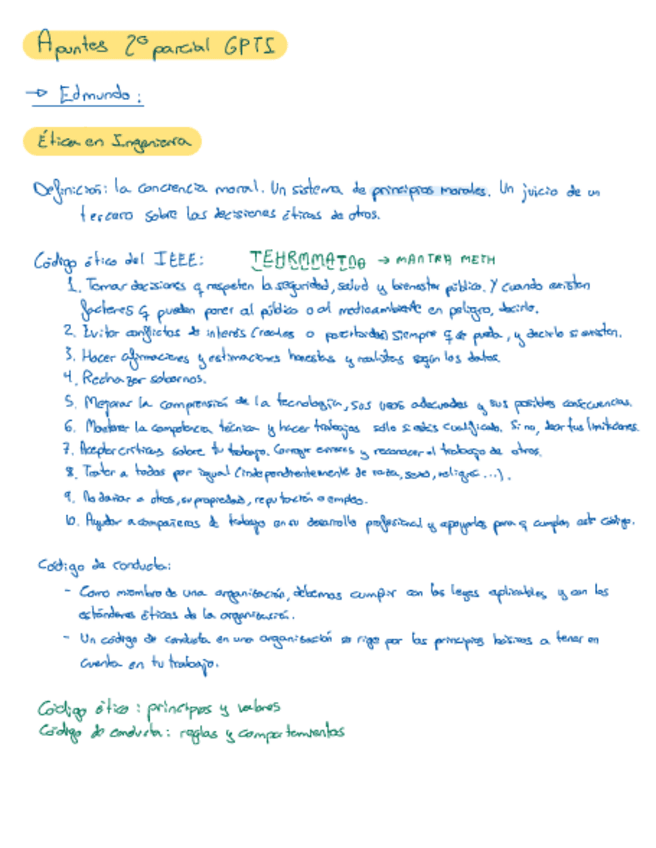 Apuntes 2º parcial GPTI
→ Edmundo:
Ética en Ingeniería
Definición: la conciencia moral. Un sistema de principios morales. Un juicio de un
tercero sobre las decisiones éticas de otros.
Código ético del IEEE: TEHRMMATDA → MANTRA METH
1. Tomar decisiones q respeten la seguridad, salud y bienestar público. Y cuando existen
factores q pueden poner al público o al medioambiente en peligro, decirlo.
2. Evitar conflictos de interés (reales o percibidos) siempre q se pueda, y decirlo si existen.
3. Hacer afirmaciones y estimaciones honestas y realistas según los datos.
4. Rechazar sobornos.
5. Mejorar la comprensión de la tecnología, sus usos adecuados y sus posibles consecuencias.
6. Mantener la competencia técnica y hacer trabajos sólo si estás cualificado. Si no, dear tus limitaciones.
7. Aceptar críticas sobre tu trabajo. Corregir errores y reconocer el trabajo de otros.
8. Tratar a todos por igual (independientemente de raza, sexo, religión...).
9. No dañar a otros, su propiedad, reputación o empleo.
10. Ayudar a compañeros de trabajo en su desarrollo profesional y apoyarlos para q cumplan este código.
Código de conducta:
- Como miembro de una organización, debemos cumplir con las leyes aplicables y con los
estándares éticos de la organización.
- Un código de conducta en una organización se rige por los principios básicos a tener en
cuenta en tu trabajo.
Código ético: principios y valores
Código de conducta: reglas y comportamientos